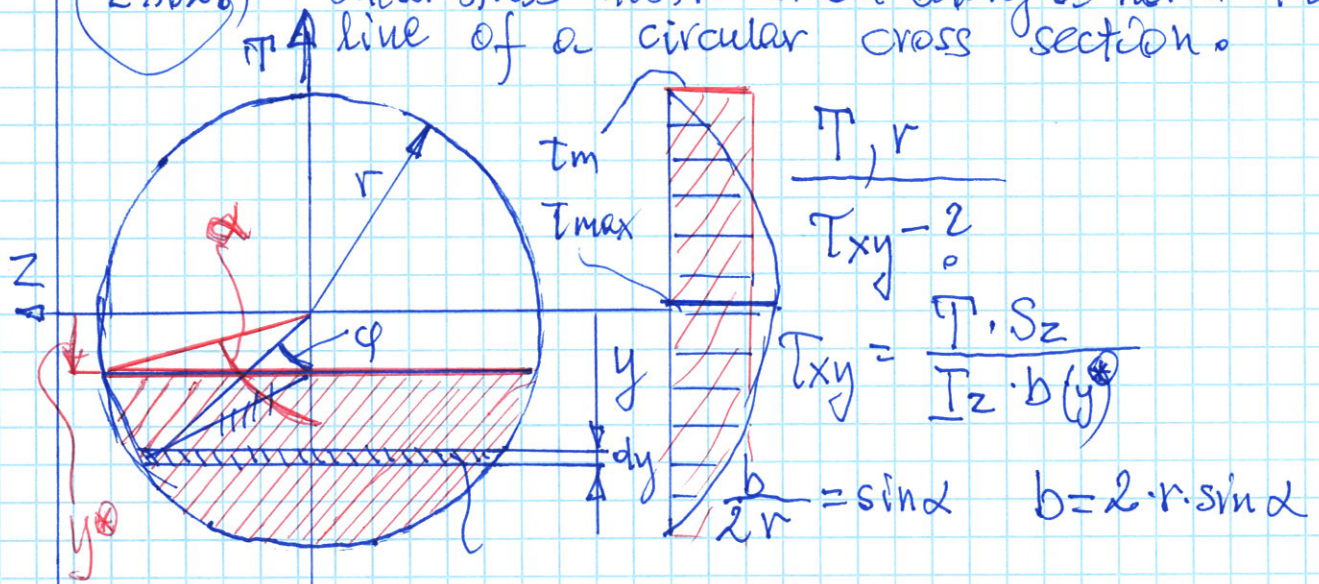 line of a circular cross section.
T
r
α
τm
τmax
T, r
τxy - ?
Z
φ
y
τxy = T · Sz / Iz · b(y*)
dy
b / 2r = sinα b = 2 · r · sinα
y*